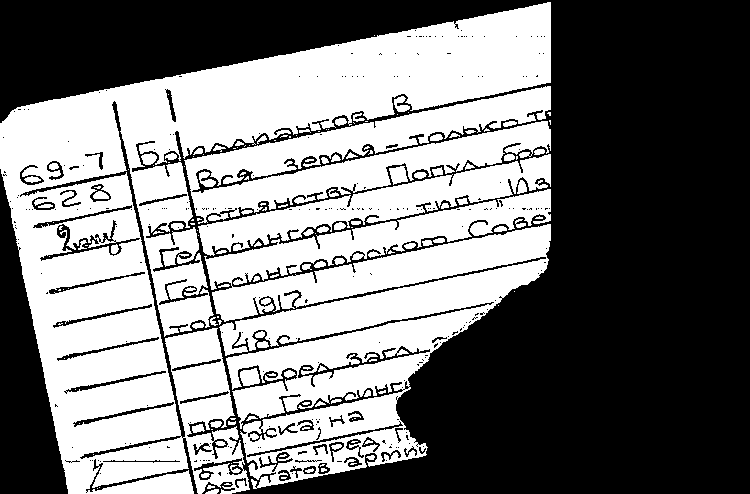 69-7
628
2экз
Бриллиантов, В
Вся земля - только тр
крестьянству. Попул. бро
Гельсингфорс, тип. „Из
Гельсингфорского Сове
тов, 1917.
48 с.
Перед загл.
пред. Гельсинг
кружка; на
б. вице-пред.
депутатов арми